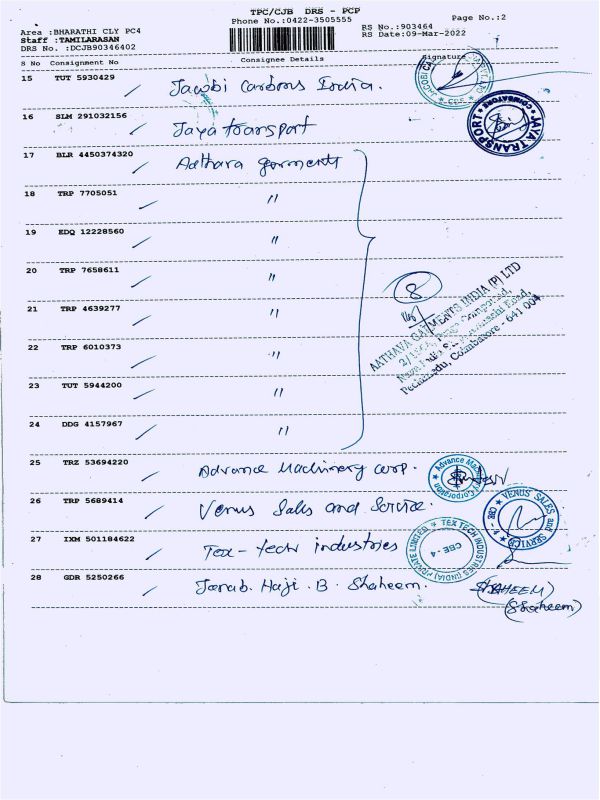 TPC/CJB DRS - PCP
Phone No.:0422-3505555
Page No.:2
Area :BHARATHI CLY PC4
Staff :TAMILARASAN
DRS No. :DCJB90346402
RS No.:903464
RS Date:09-Mar-2022
S No Consignment No Consignee Details Signature
15 TUT 5930429 Jacobi Carbons India.
16 SLM 291032156 Jaya transport
JAYA TRANSPORT * COIMBATORE *
17 BLR 4450374320 Aathava garments
18 TRP 7705051 "
19 EDQ 12228560 "
20 TRP 7658611 "
8
21 TRP 4639277 "
AATHAVA GARMENTS INDIA (P) LTD
Peelamedu, Coimbatore - 641 004
22 TRP 6010373 "
23 TUT 5944200 "
24 DDG 4157967 "
25 TRZ 53694220 Advance Machinery corp.
Advance Machinery Corporation
26 TRP 5689414 Venus Sales and Service.
VENUS SALES and SERVICE CBE - 4
27 IXM 501184622 Tex-tech industries
TEX TECH INDUSTRIES (INDIA) PRIVATE LIMITED CBE - 4
28 GDR 5250266 Janab. Haji. B. Shaheem.
SHAHEEM
(Shaheem)